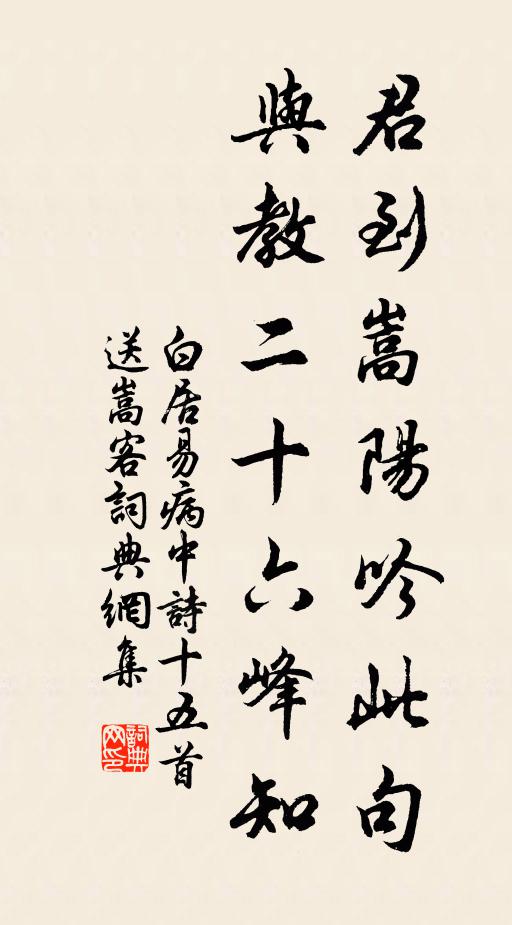 君到嵩陽吟此句
與教二十六峰知
白居易病中詩十五首
送嵩客詞典網集
詞典网印